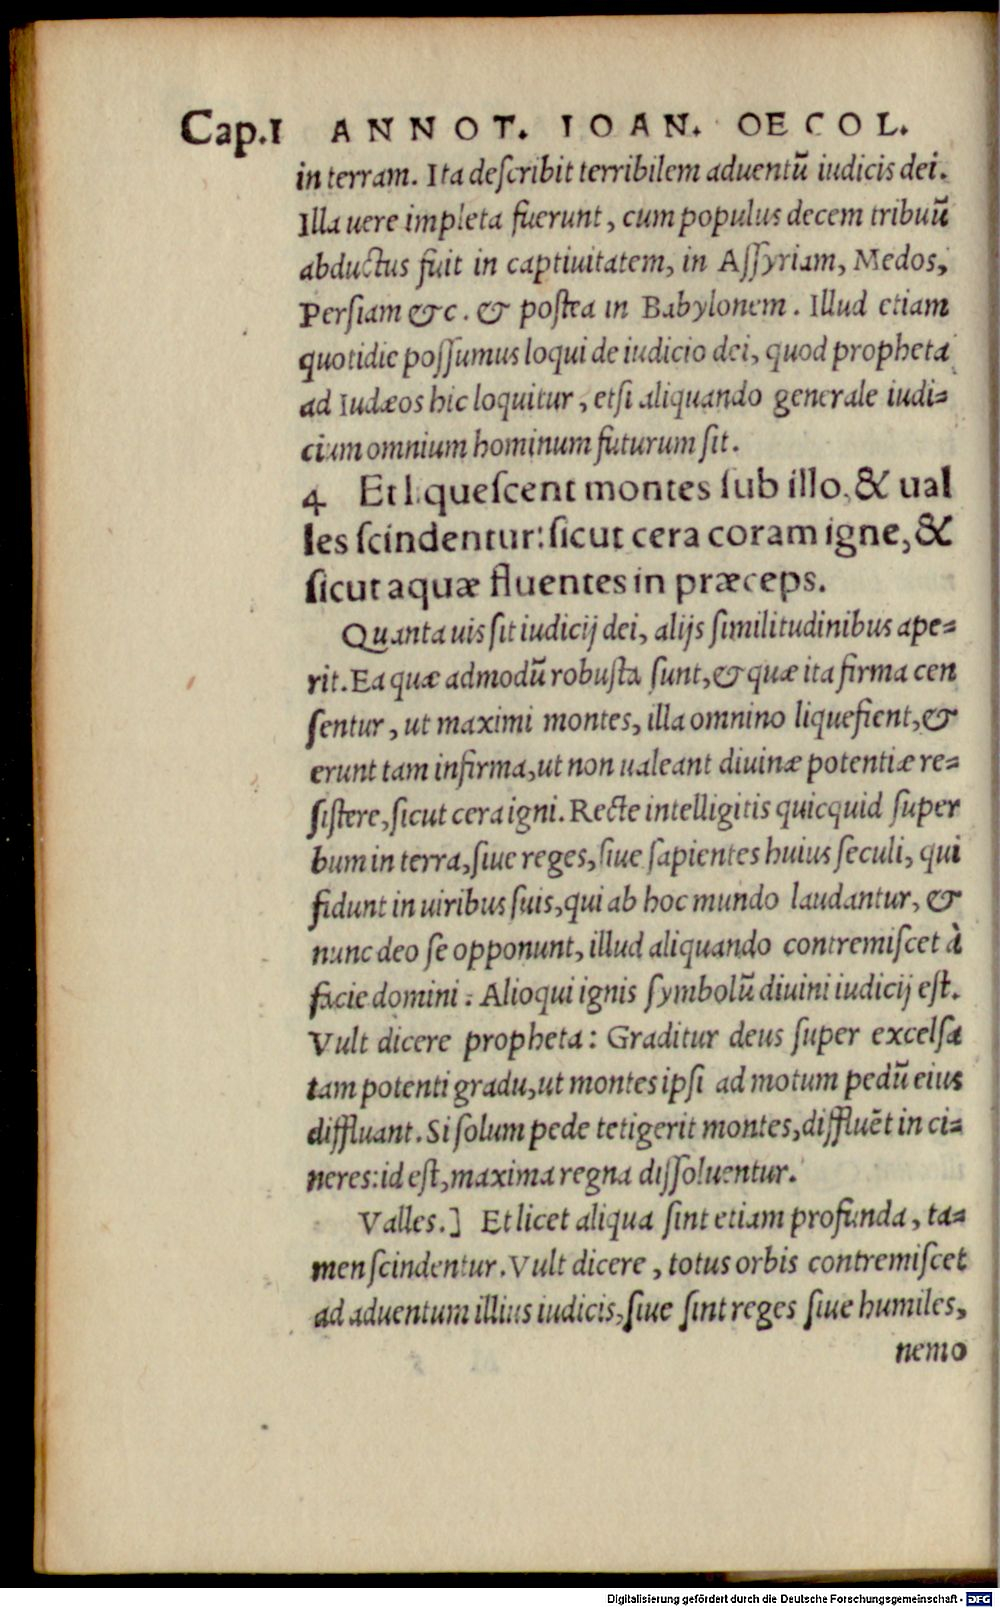 Cap.I ANNOT. IOAN. OECOL.
in terram. Ita deſcribit terribilem aduentũ iudicis dei.
Illa uere impleta fuerunt, cum populus decem tribuũ
abductus fuit in captiuitatem, in Aſſyriam, Medos,
Perſiam &c. & poſtea in Babylonem. Illud etiam
quotidie poſſumus loqui de iudicio dei, quod propheta
ad Iudæos hic loquitur, etſi aliquando generale iudi=
cium omnium hominum futurum ſit.
4 Et liqueſcent montes ſub illo, & ual
les ſcindentur: ſicut cera coram igne, &
ſicut aquæ fluentes in præceps.
Quanta uis ſit iudicij dei, alijs ſimilitudinibus ape=
rit. Ea quæ admodũ robuſta ſunt, & quæ ita firma cen
ſentur, ut maximi montes, illa omnino liquefient, &
erunt tam infirma, ut non ualeant diuinæ potentiæ re=
ſiſtere, ſicut cera igni. Recte intelligitis quicquid ſuper
bum in terra, ſiue reges, ſiue ſapientes huius ſeculi, qui
fidunt in uiribus ſuis, qui ab hoc mundo laudantur, &
nunc deo ſe opponunt, illud aliquando contremiſcet à
facie domini. Alioqui ignis ſymbolũ diuini iudicij eſt.
Vult dicere propheta: Graditur deus ſuper excelſa
tam potenti gradu, ut montes ipſi ad motum pedũ eius
diffluant. Si ſolum pede tetigerit montes, diffluẽt in ci=
neres: id eſt, maxima regna diſſoluentur.
Valles.] Et licet aliqua ſint etiam profunda, ta=
men ſcindentur. Vult dicere, totus orbis contremiſcet
ad aduentum illius iudicis, ſiue ſint reges ſiue humiles,
nemo
Digitalisierung gefördert durch die Deutsche Forschungsgemeinschaft - DFG